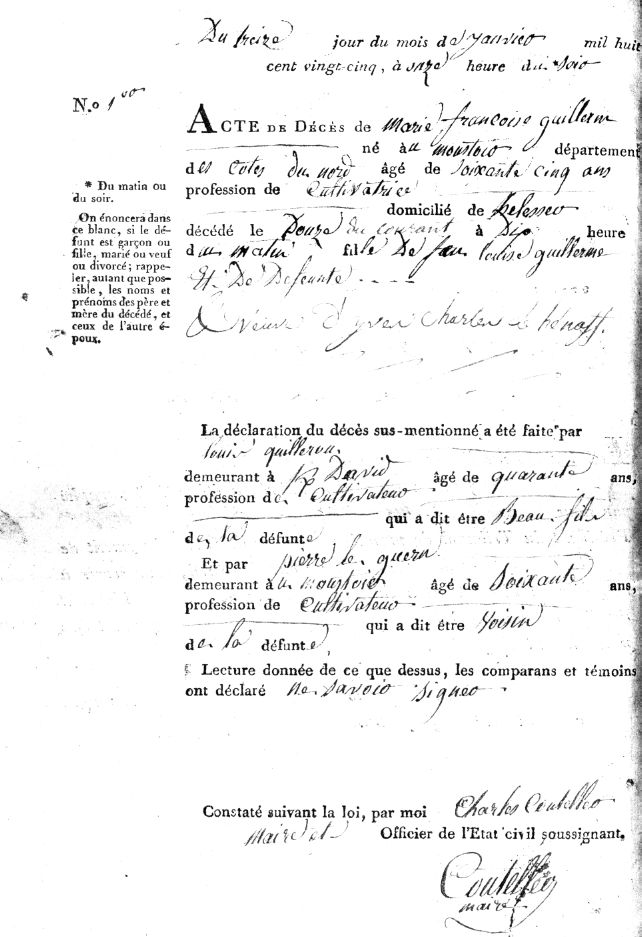 Du treize jour du mois de janvier mil huit
cent vingt-cinq, à onze heure du * soir
N.o 1
ACTE DE DÉCÈS de marie françoise guillerm
né au moustoir département
des cotes du nord âgé de soixante cinq ans
profession de Cultivatrice
domicilié de
décédé le Douze du courant à Dix heure
du matin fille De feu louis guillerme
Et De Defeunte
veuve d'yves Charles le hénaff.
* Du matin ou
du soir.
On énoncera dans
ce blanc, si le dé-
funt est garçon ou
fille, marié ou veuf
ou divorcé; rappe-
ler, autant que pos-
sible, les noms et
prénoms des père et
mère du décédé, et
ceux de l'autre é-
poux.
La déclaration du décès sus-mentionné a été faite par
louis guillerou
demeurant à David âgé de quarante ans,
profession de Cultivateur
qui a dit être Beau fils
de la défunte
Et par pierre le guern
demeurant au moustoir âgé de Soixante ans,
profession de Cultivateur
qui a dit être Voisin
de la défunte
Lecture donnée de ce que dessus, les comparans et témoins
ont déclaré ne savoir signer
Constaté suivant la loi, par moi Charles Coutellec
Maire et Officier de l'Etat civil soussignant.
Coutellec
maire